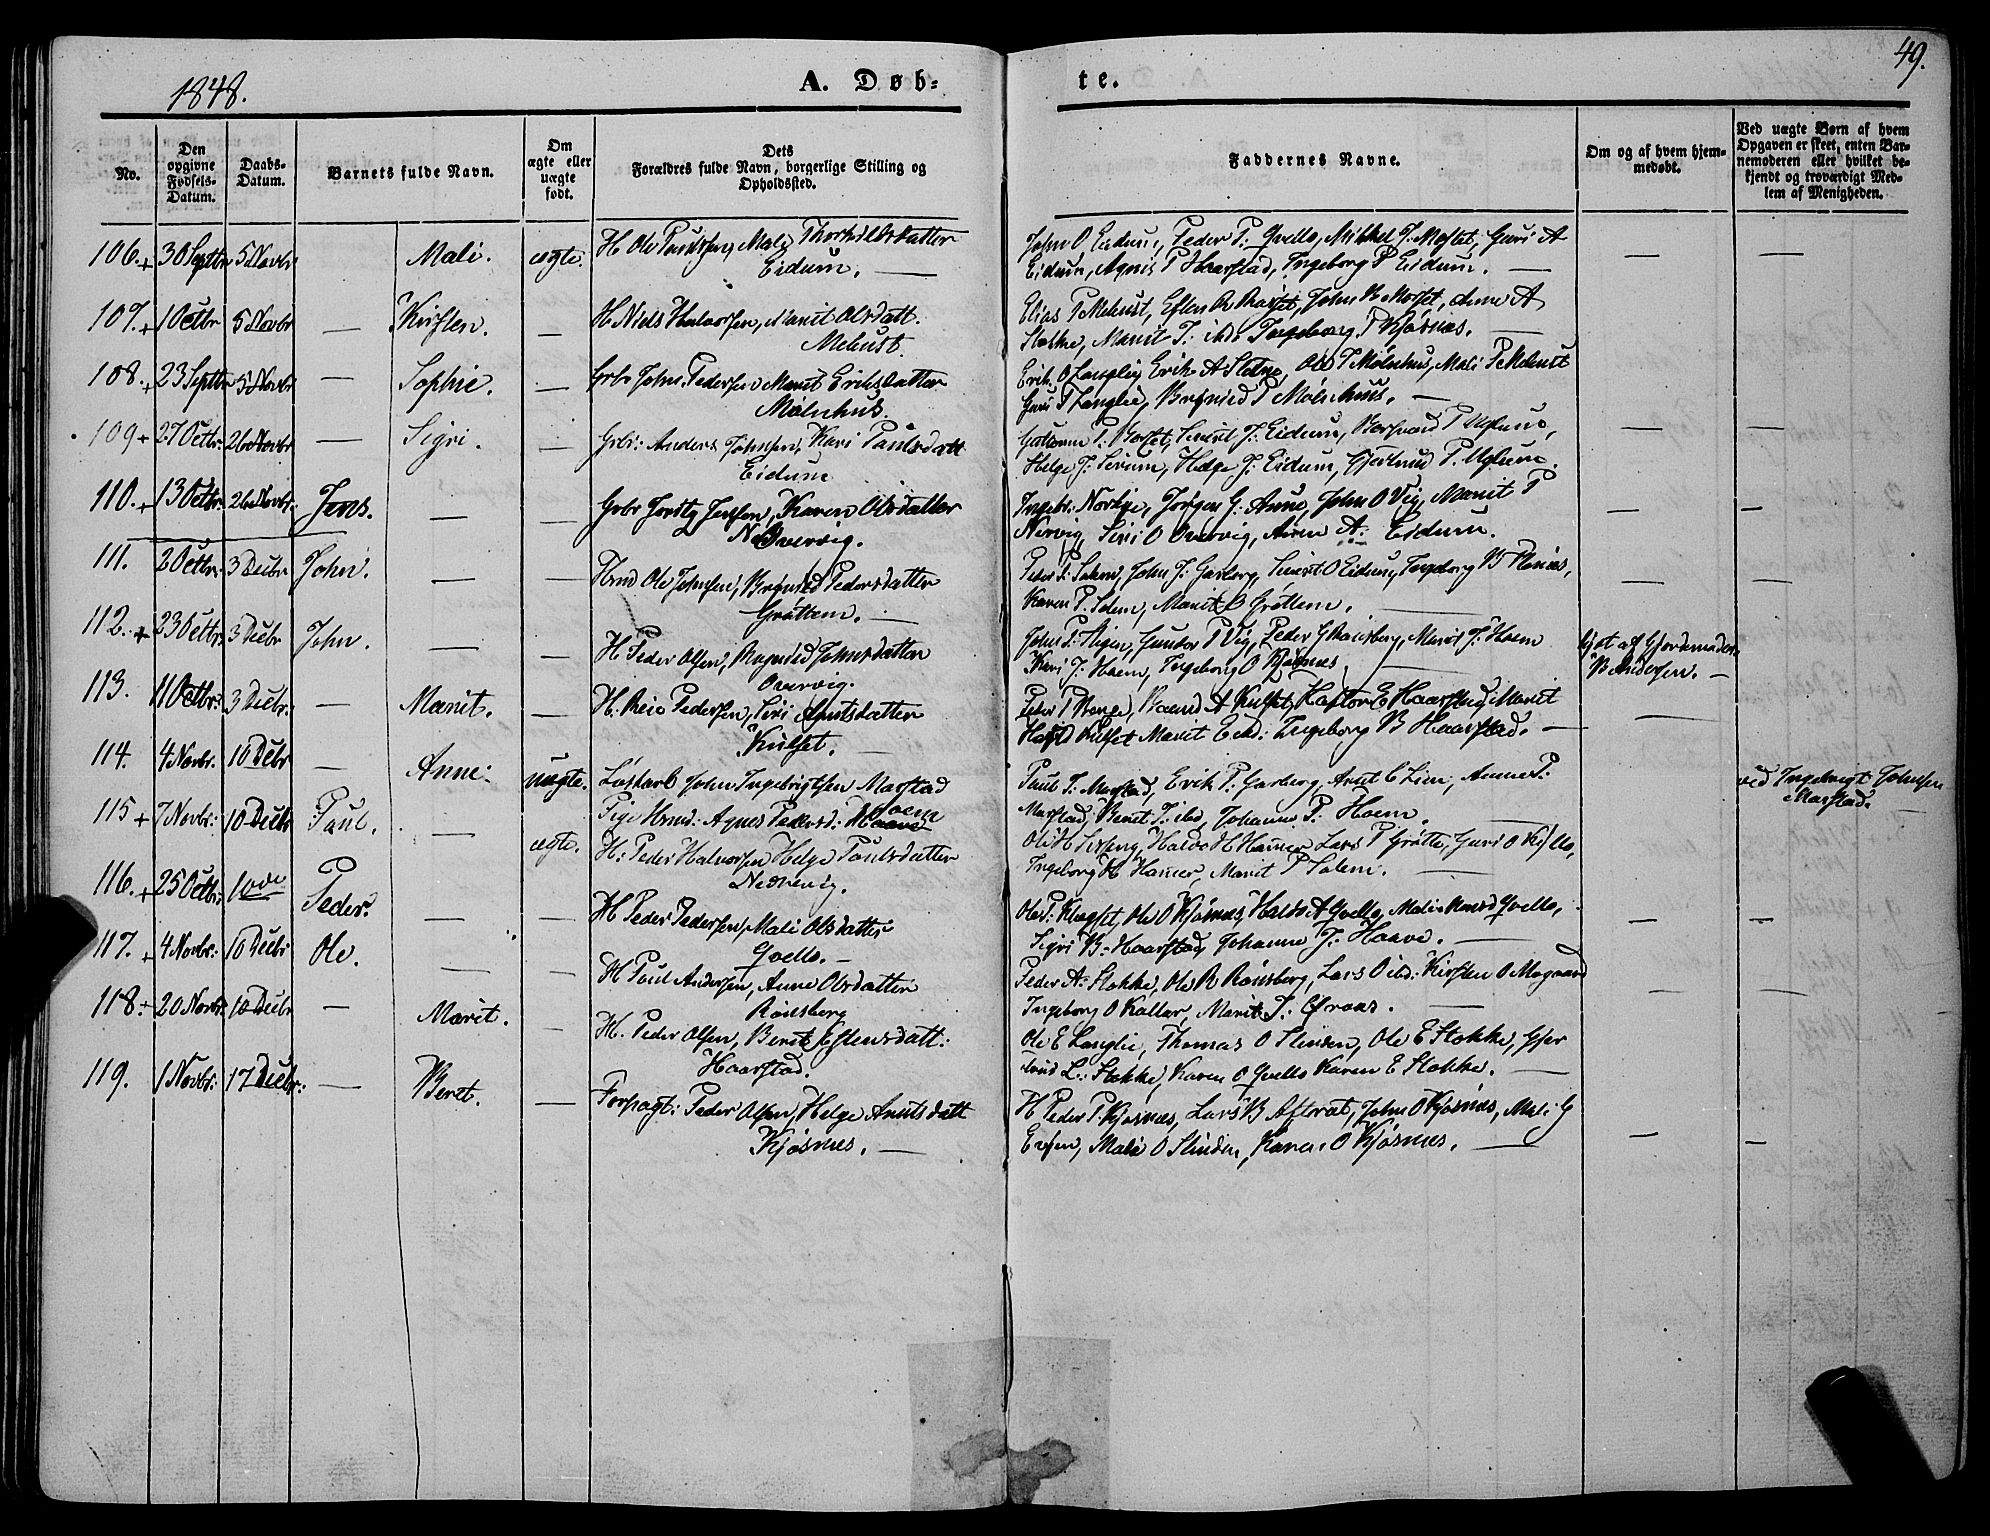 1848.
A. Døb-
te.
49.
No.
Den opgivne Fødsels-Datum.
Daabs-Datum.
Barnets fulde Navn.
Om ægte eller uægte født.
Dets Forældres fulde Navn, borgerlige Stilling og Opholdssted.
Faddernes Navne.
Om og af hvem hjemmedøbt.
Ved uægte Børn af hvem Opgaven er skeet, enten Barnemoderen eller hvilket bekjendt og troværdigt Medlem af Menigheden.
106. + 30 Septbr 5 Novbr Mali. ægte. H Ole Paulsen, Mali Thorkildsdatter
Eidum. —
John O Eidum, Peder P: Qvello, Mikkel J. Mostet, Guri A
Eidum, Agnis P Haarstad, Ingeborg P Eidum. —
107. + 1 Octbr 5 Novbr — Kirsten. — H Niels Halvorsen, Marit Olsdatt.
Mehust.
Elias P Mehust, Esten R Røset, John N Moset, Anne A
Stokke, Marit J: ibd Ingeborg P Kjøsnæs. —
108. + 23 Septbr 5 Novbr — Sophie. — Grbr John Pedersen Marit Eriksdatter
Mølnhus.
Erik O Langlie, Erik A Sletne, Ole P Mølnhus, Mali P Mehust
Guri P Langlie, P Mølnhus. —
109 + 27 Octbr: 26 Novbr — Sigri. — Grbr: Anders Johnsen, Kari Paulsdatt
Eidum
P. Borset, Sivert J: Eidum, P Uglum,
Helge J: Serum, Helge J: Eidum, Gjertrud P. Uglum.
110. + 13 Octbr: 26 Novbr: Jens. — — Grbr Jensen, Karen Olsdatter
Overvig.
Ingebr: Jørgen G: Aune, John O Vig, Marit P
Nervig, Siri O Overvig, Anne A. Eidum.
111. 2 Octbr: 3 Decbr John. — — Hmd Ole Johnsen, Pedersdatter
Grøttem. —
Peder P: Salem, John J: Garberg, Sivert O Eidum, Ingeborg B
Karen P. Selem, Marit B Grøttem. —
112. + 23 Octbr: 3 Decbr John. — — H Peder Olsen, Johnsdatter
Overvig.
John P: Aigen, Gunder P Vig, Peder G Rønsberg, Marit J: Haem
Kari J: Haem, Ingeborg O Kjøsnæs. —
af Gjordemoder
B Andersen. —
113. 11 Octbr: 3 Decbr: — Marit. — H. Pedersen, Siri Arntsdatter
Kulset. —
Peder P A Kulset, Haftor E Haarstad, Marit
Kulset Marit E ibd: Ingeborg B Haarstad. —
114. 4 Novbr. 10 Decbr — Anne. uægte. Løskarl John Ingebrigtsen Marstad
Pige Hmd: Agnes Pedersd: Hoem
Paul J: Marstad, Erik P. Garberg, Arnt C Lien, Anne P:
Marstad, Beret J: ibd, Johanne P: Hoem. —
ved Ingebrigt Johnsen
Marstad. —
115 + 7 Novbr: 10 Decbr Paul. — ægte. H: Peder Halvorsen Helge Paulsdatter
Nedrevig.
Ole H Halvo H Hamer Lars P Grøtte, Guri O
Ingeborg H Hamer, Marit P Salem. —
116. + 25 Octbr: 10de Peder. — — H Peder Pedersen, Mali Olsdatter
Qvello. —
Ole O Kjøsnæs, Haldo A Qvello, Mali Qvello,
Sigri B. Haarstad, Johanne J: Haave. —
117. + 4 Novbr: 10 Decbr Ole. — — H Paul Andersen, Anne Olsdatter
Rønsberg
Peder A: Stokke, Ole R Rønsberg, Lars O ibd: Kirsten O Mogaard
Ingeborg O Kallar, Marit J. Graas. —
118. 20 Novbr 10 Decbr — Marit. — H. Peder Olsen, Berit Estensdatt:
Haarstad.
Ole E Langlie, Thomas O Slinden, Ole E Stokke, Gjer
trud L: Stokke, Karen O Qvello Karen E Stokke. —
119. 1 Novbr: 17 Decbr: — Beret. — Forpagt: Peder Olsen, Helge Arntsdatt
Kjøsnæs. —
H Peder P Kjøsnæs, Lars B Aftret, John O Kjøsnæs, Mali G
Evjen, Mali O Slinden, Karen O Kjøsnæs. —